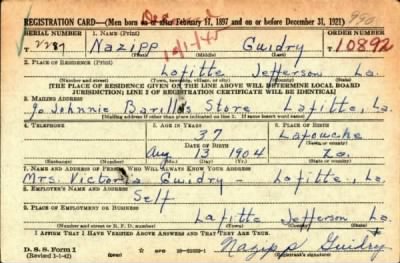 REGISTRATION CARD—(Men born on or after February 17, 1897 and on or before December 31, 1921)
SERIAL NUMBER 1. NAME (Print) ORDER NUMBER
T 2287 Nazipp Guidry 10892
2. PLACE OF RESIDENCE (Print)
Lafitte Jefferson La.
(Number and street) (Town, township, village, or city) (County) (State)
[THE PLACE OF RESIDENCE GIVEN ON THE LINE ABOVE WILL DETERMINE LOCAL BOARD
JURISDICTION; LINE 2 OF REGISTRATION CERTIFICATE WILL BE IDENTICAL]
3. MAILING ADDRESS
% Johnnie Barilla's Store Lafitte, La.
[Mailing address if other than place indicated on line 2. If same insert word same]
4. TELEPHONE 5. AGE IN YEARS 6. PLACE OF BIRTH
37 Lafouche
DATE OF BIRTH (Town or county)
Aug 13 1904 La.
(Exchange) (Number) (Mo.) (Day) (Yr.) (State or country)
7. NAME AND ADDRESS OF PERSON WHO WILL ALWAYS KNOW YOUR ADDRESS
Mrs. Victoria Guidry - Lafitte, La.
8. EMPLOYER'S NAME AND ADDRESS
Self
9. PLACE OF EMPLOYMENT OR BUSINESS
Lafitte Jefferson La.
(Number and street or R. F. D. number) (Town) (County) (State)
I AFFIRM THAT I HAVE VERIFIED ABOVE ANSWERS AND THAT THEY ARE TRUE.
D. S. S. Form 1
(Revised 1-1-42) (over) Nazipp Guidry
(Registrant's signature)